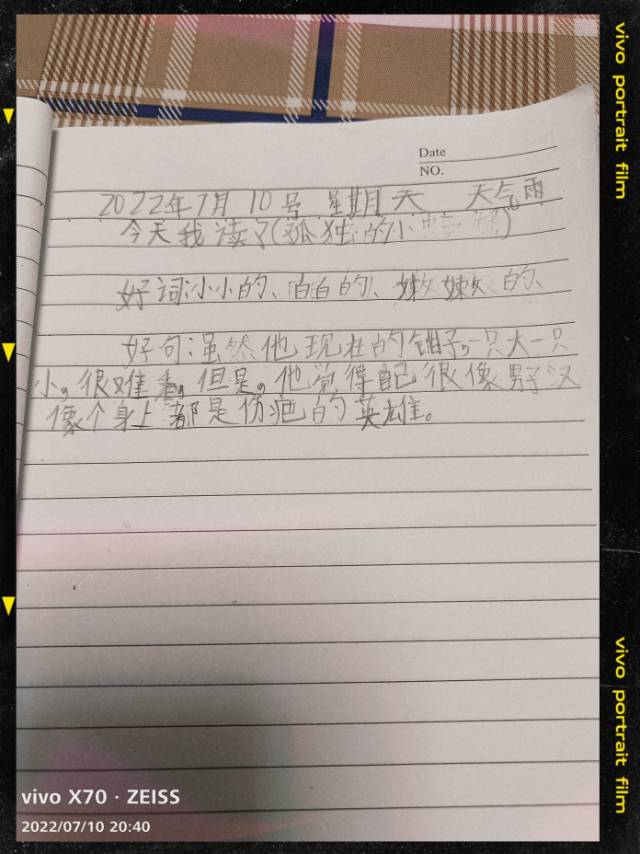 Date
NO.
2022年7月10号 星期天 天气雨
今天我读了(孤独的小螃蟹)
好词:小小的、白白的、嫩嫩的、
好句:虽然他现在的钳子,一只大一只
小,很难看,但是,他觉得自己很像男子汉
像个身上都是伤疤的英雄。
vivo portrait film
vivo portrait film
vivo X70 · ZEISS
2022/07/10 20:40